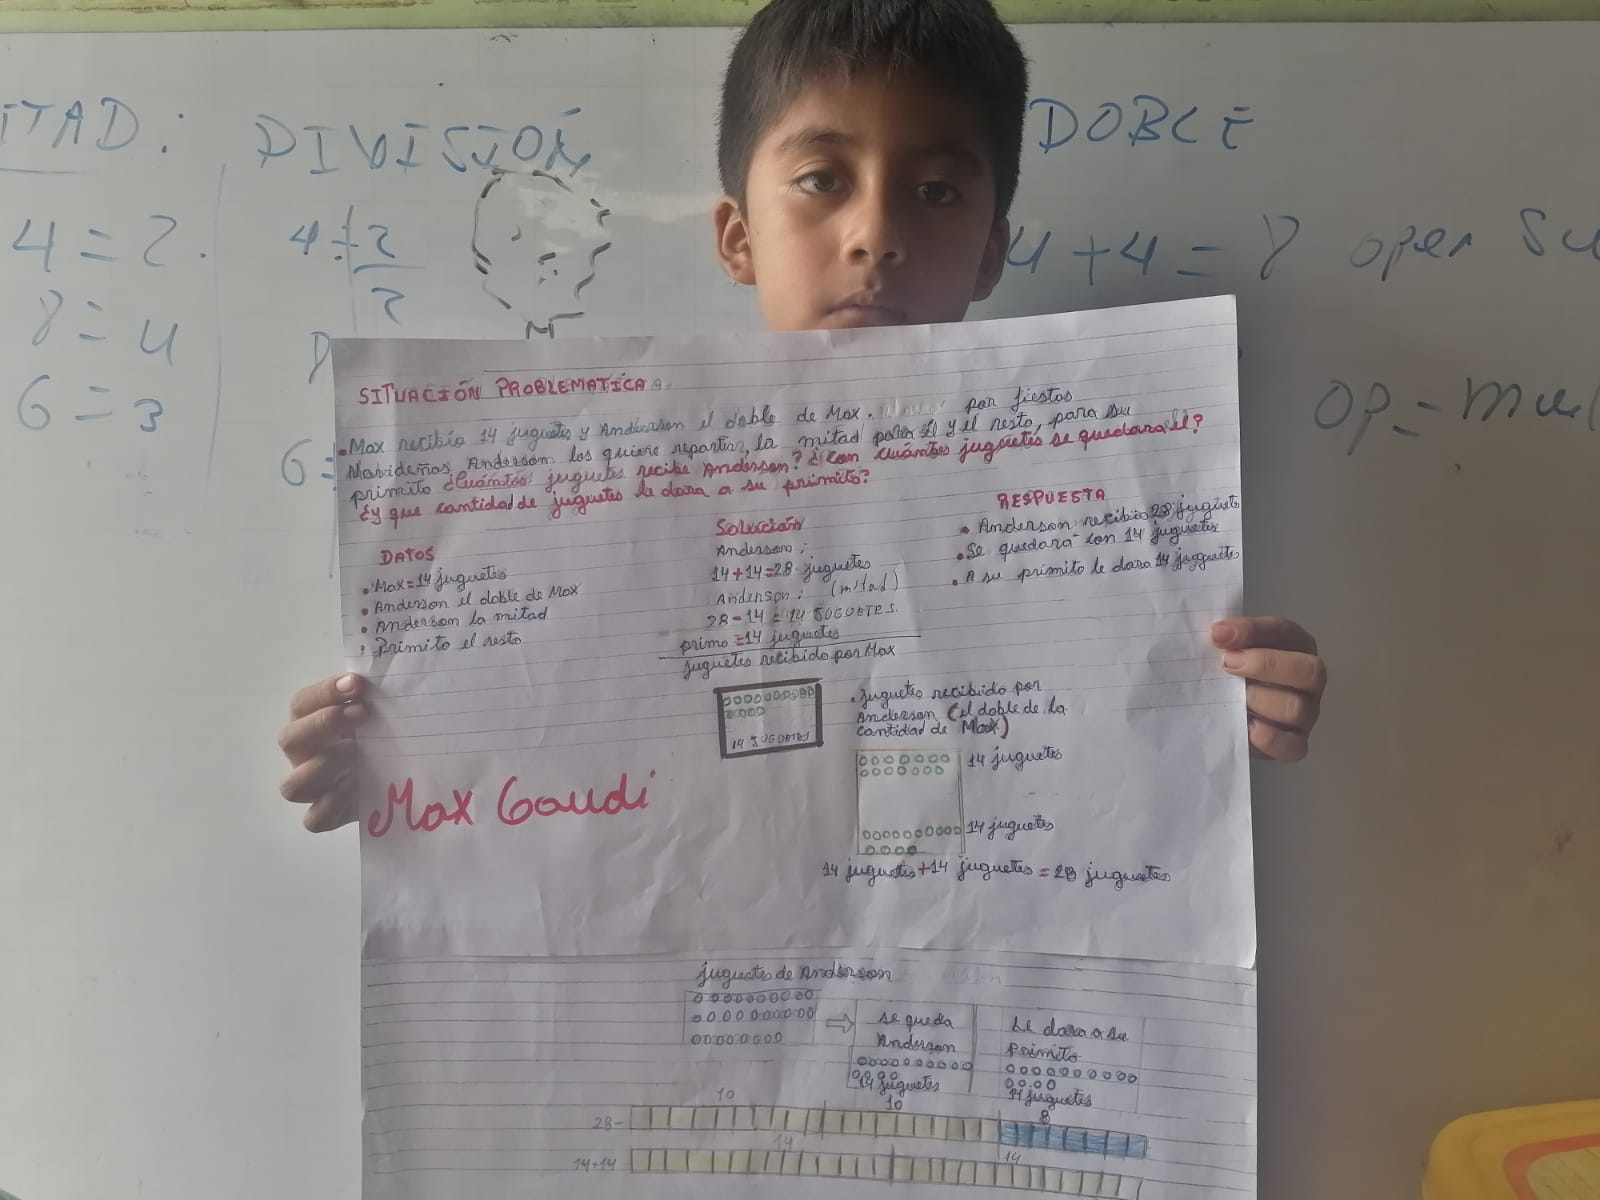 ITAD:
4 = 2.
8 = 4
6 = 3
DIVISIÓN
4 ÷ 2
2
8
6 =
DOBLE
4 + 4 = 8 open Su
OP = mul
SITUACIÓN PROBLEMATICA
• Max recibío 14 juguetes y Anderson el doble de Max. por fiestas
Navideñas. Anderson los quiere repartir, la mitad para él y el resto, para su
primito ¿Cuántos juguetes recibe Anderson? ¿Con cuántos juguetes se quedara él?
¿Y que cantidad de juguetes le dara a su primito?
DATOS
• Max=14 juguetes
• Anderson el doble de Max
• Anderson la mitad
• Primito el resto
Solución
Anderson:
14+14=28 juguetes
Anderson: (mitad)
28-14 = 14 JUGUETES.
primo = 14 juguetes
juguetes recibido por Max
RESPUESTA
• Anderson recibio 28 juguets
• Se quedara con 14 juguetes
• A su primito le dara 14 jugguetes
14 JUGUETES
• juguetes recibido por
Anderson (el doble de la
cantidad de Max)
14 juguetes
14 juguetes
14 juguetes+14 juguetes = 28 juguetes
Max Gaudi
juguetes de Anderson
se queda
Anderson
14 juguetes
Le dara a su
Primito
14 juguetes
10
10
8
28-
14
14
14+14